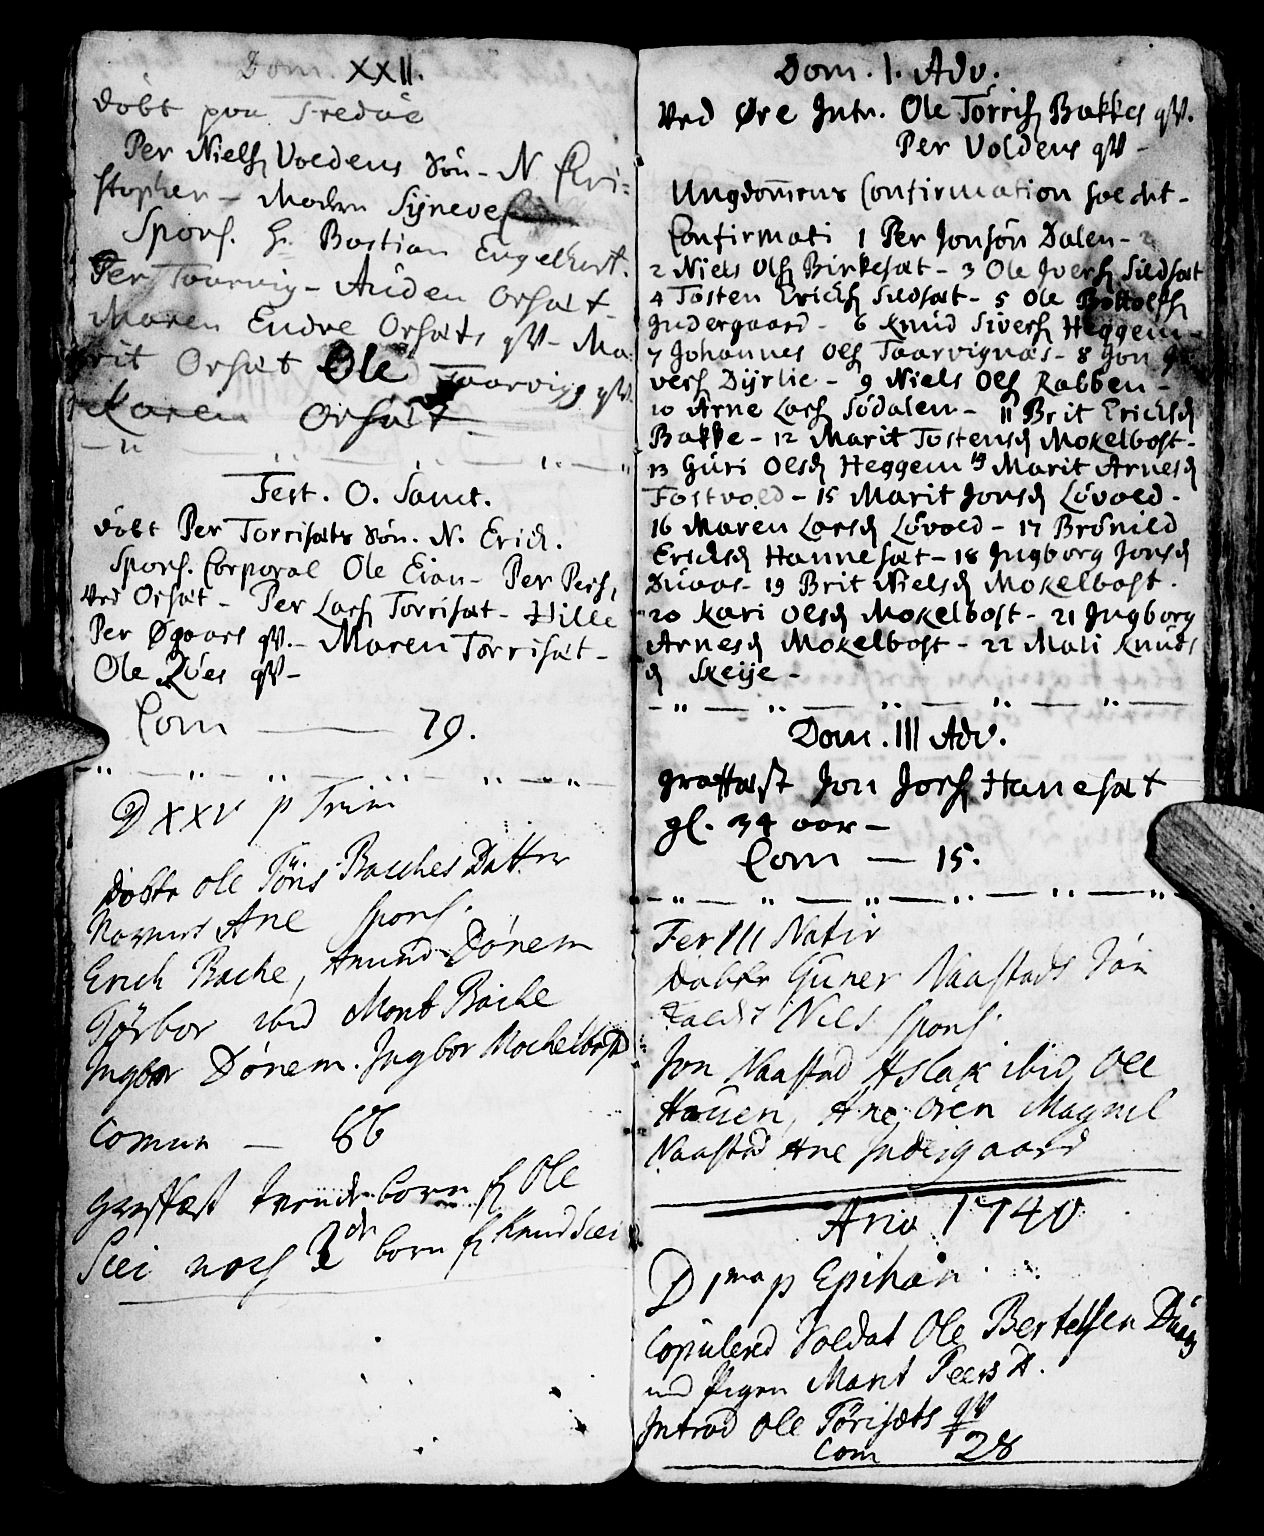 Dom. XXII.
döbt paa Fredöe
Per Nielss Voldens Sön - N. Chri-
stopher - Modren Sijneve
Spons. Hr. Bastian Engelhert.
Per Taarvig - Auden Orsæt -
Maren Endre Orsæts qV - Ma-
rit Orsæt Ole Taarvigs qV.
Karen Orsæt -
Fest. O. Sanct.
döbt Per Torrisæts Sön. N. Erich.
Spons. Corporal Ole Eian - Per Perss,
Ved Orsæt - Per Larss Torrisæt - Hille
Per Øgaars qV. - Maren Torrisæt -
Ole Röes qV -
Com — 79.
D XXV p Trin
Döbte Ole Töris Bacches Datter
Nafnes Ane Spons.
Erich Bache, Amund Dönem
Törbor ibid Marit Bache
Ingbor Dönem. Ingbor Mochelbost
Comun — 66
græffæst tvende born f Ole
Scei noch 3de born f Knud Scei
Dom. 1. Adv.
Ved Øre Intr. Ole Torriss Bakkes qV.
Per Voldens qV -
Ungdommens Confirmation holdt -
Confirmati 1 Per Jonsön Dalen -
2 Niels Olss Birkesæt - 3 Ole Iverss Sildsæt
4 Tosten Erichss Sildsæt - 5 Ole Bottolfss
Indergaard - 6 Knud Siverss Heggem -
7 Johannes Olss Taarvignæs - 8 Jon I-
verss Dijrlie - 9 Niels Olss Rabben -
10 Arne Larss Södalen - 11 Brit Ericksd
Bakke - 12 Marit Tostensd Mokelbost -
13 Guri Olsd Heggem 14 Marit Arnesd
Fostvold - 15 Marit Jonsd Lövold -
16 Maren Larsd Lövold - 17 Brönild
Ericksd Hannesæt - 18 Ingborg Jonsd
Duaas - 19 Brit Nielsd Mokelbost.
20 Kari Olsd Mokelbost - 21 Ingborg
Arnesd Mokelbost - 22 Mali Knuds
d Skeije -
Dom. III Adv.
græffæst Jon Jorss Hanesæt
gl. 34 aar -
Com — 15.
Fer III Nativ
Döbte Guner Naastads Sön
Kaldet Nils Spons.
Jon Naastad Aslak ibid, Ole
Hauen, Ane Ören Magnil
Naastad Ane Indergaard
Ano 1740
D 1ma p Epihan
Copulered Soldat Ole Bertelsen Duaas
med Pigen Marit Peers D.
Introd Ole Törisæts qV
Com 28